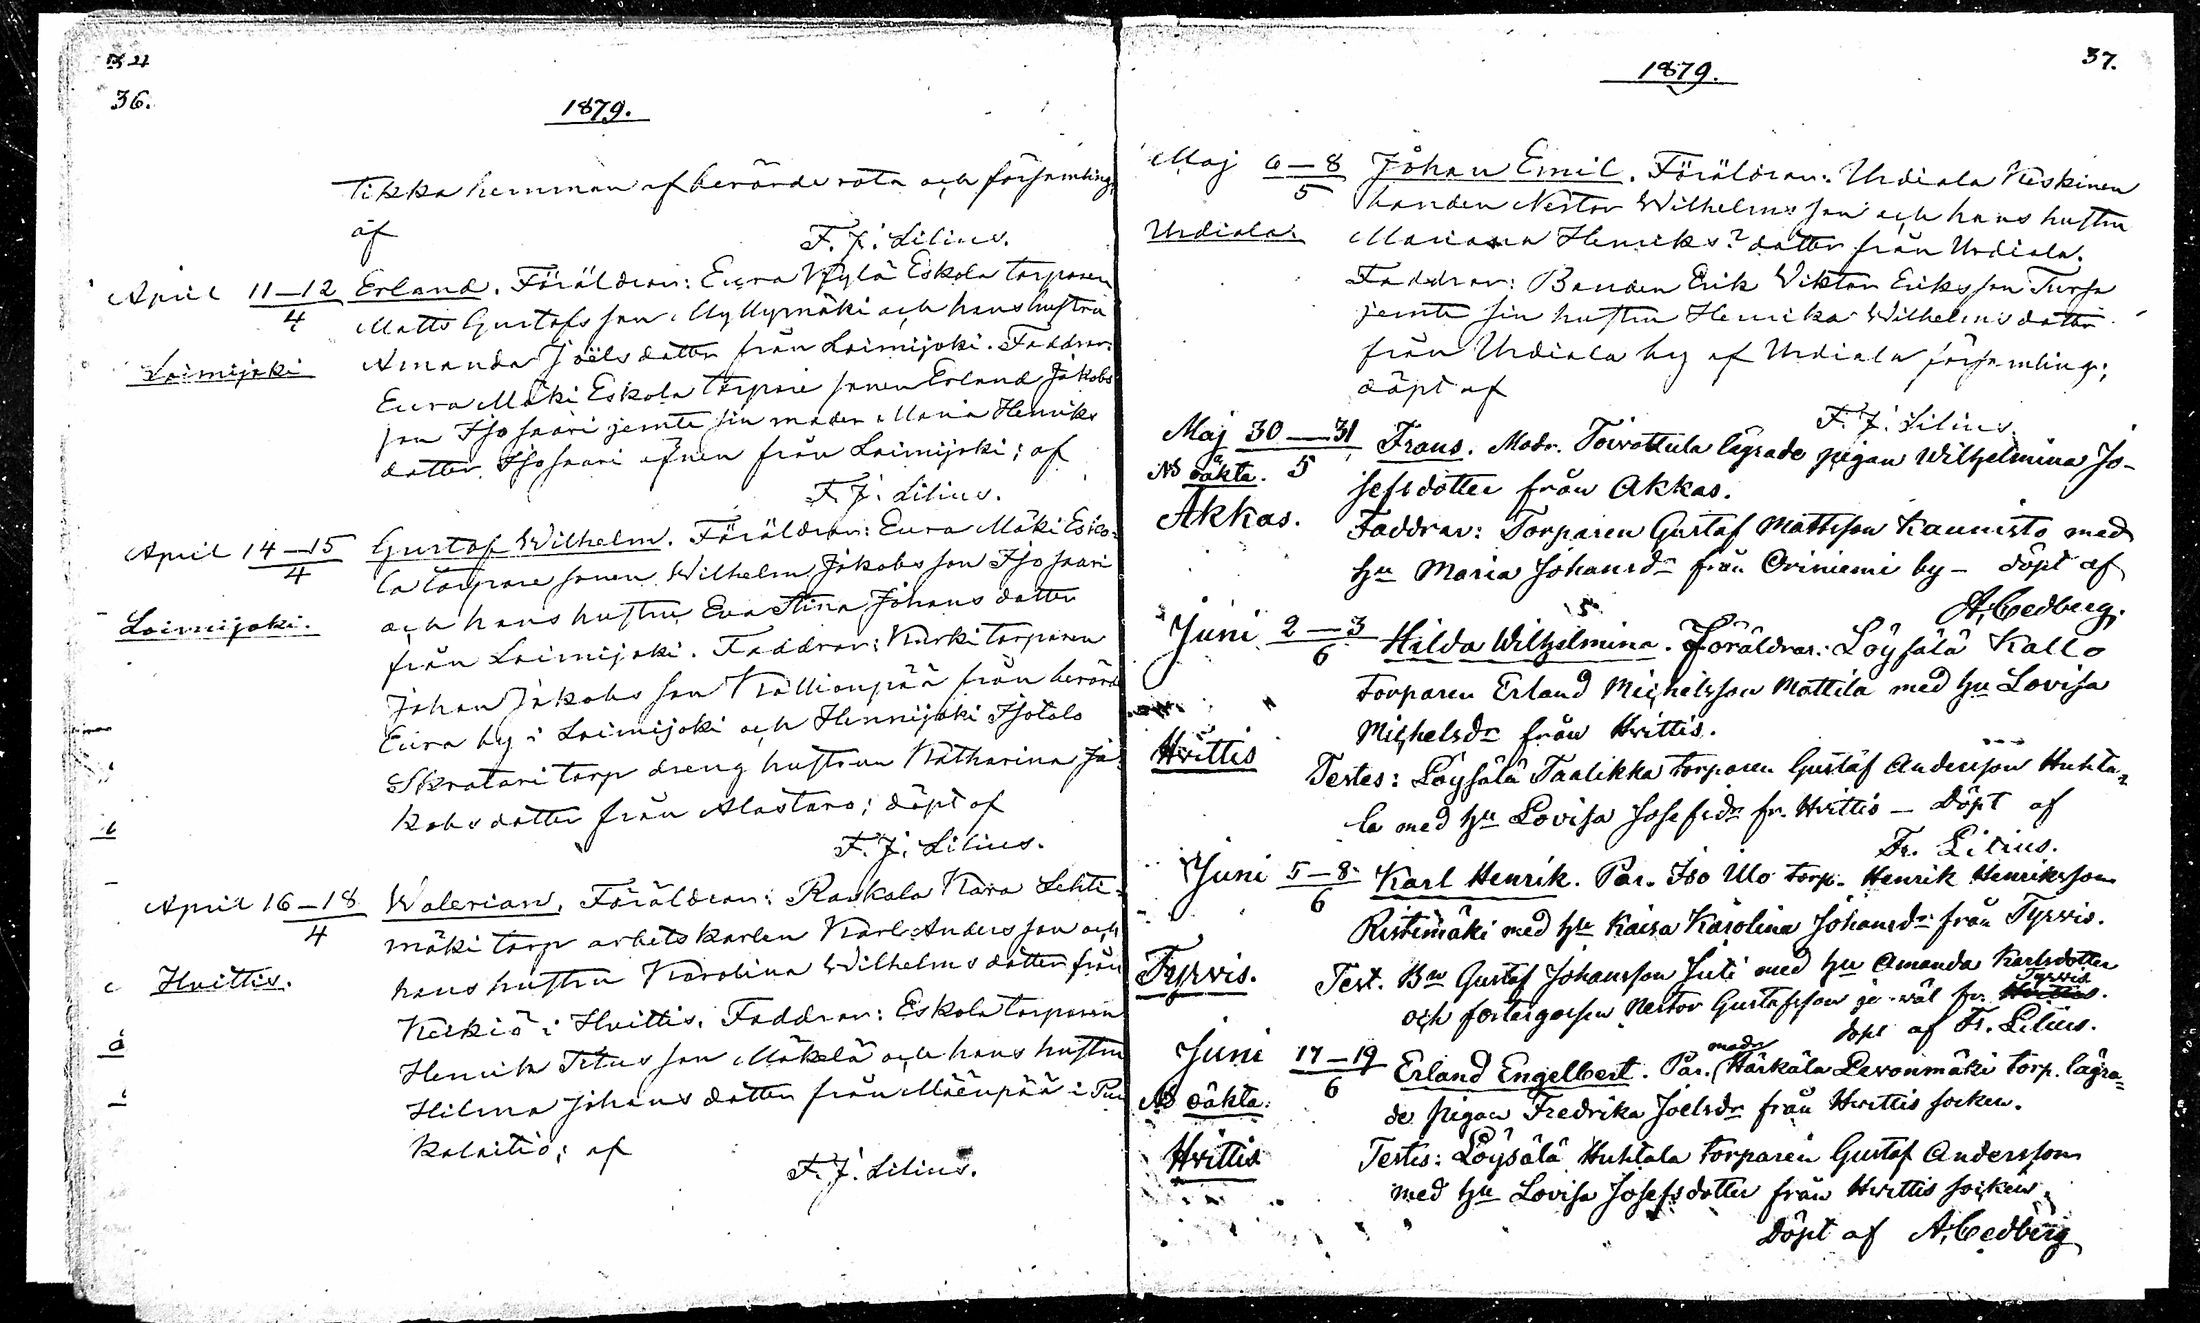 36.
1879.
Tikka hemman af berörde rota och församling,
af
F. J. Lilius.
April 11–12/4 Erland. Föräldrar: Eura Kylä Eskola torparen
Matts Gustafsson Myllymäki och hans hustru
Loimijoki Amanda Joëlsdotter från Loimijoki. Faddrar:
Eura Mäki Eskola torpare sonen Erland Jakobs
son Isosaari jemte sin moder Maria Henriks
dotter Isosaari äfven från Loimijoki; af
F. J. Lilius.
April 14–15/4 Gustaf Wilhelm. Föräldrar: Eura Mäki Esko-
la torpare sonen Wilhelm Jakobsson Isosaari
Loimijoki. och hans hustru Eva Stina Johans dotter
från Loimijoki. Faddrar: Kurki torparen
Johan Jakobsson Kallionpää från berörde
Eura by i Loimijoki och Hennijoki Isotalo
Skratari torp dreng hustrun Katharina Ja-
kobsdotter från Alastaro; döpt af
F. J. Lilius.
April 16–18/4 Walerian. Föräldrar: Raskala Kara Lehti-
mäki torp arbetskarlen Karl Andersson och
Hvittis. hans hustru Karolina Wilhelmsdotter från
Keikiö i Hvittis. Faddrar: Eskola torparen
Henrik Titusson Mäkelä och hans hustru
Hilma Johansdotter från Mäenpää i Pun
kalaitio; af
F. J. Lilius.
37.
1879.
Maj 6–8/5 Johan Emil. Föräldrar: Urdiala Keskinen
bonden Nestor Wilhelmsson och hans hustru
Urdiala. Mariana Henriks? dotter från Urdiala.
Faddrar: Bonden Erik Viktor Eriksson Tursa
jemte sin hustru Henrika Wilhelmsdotter
från Urdiala by af Urdiala församling;
döpt af
F. J. Lilius.
Maj 30–31/5 Frans. Modr. Toivottula lägrade pigan Wilhelmina Jo-
NB oäkta. sefsdotter från Akkas.
Akkas. Faddrar: Torparen Gustaf Mattsson Kaunisto med
hu Maria Johansdr från Oriniemi by – döpt af
A. Cedberg.
Juni 2–3/6 Hilda Wilhelmina. Föräldrar: Löysälä Kallo
torparen Erland Michelsson Mattila med hu Lovisa
Hvittis Michelsdr från Hvittis.
Testes: Löysälä Taalikka torparen Gustaf Andersson Huhta-
la med hu Lovisa Josefsdr fr. Hvittis – Döpt af
Fr. Lilius.
Juni 5–8/6 Karl Henrik. Par. Iso Ulo torp. Henrik Henriksson
Ristimäki med hu Kaisa Karolina Johansdr från Tyrvis.
Tyrvis. Test. Bn Gustaf Johansson Juti med hu Amanda Karlsdotter
och Nestor Gustafsson fr. Hvittis Tyrvis.
döpt af Fr. Lilius.
Juni 17–19/6 Erland Engelbert. Par. modr Härkälä Levonmäki torp. lägra-
NB oäkta. de pigan Fredrika Joelsdr från Hvittis socken.
Hvittis Testes: Löysälä Huhtala torparen Gustaf Andersson
med hu Lovisa Josefsdotter från Hvittis socken.
Döpt af A. Cedberg